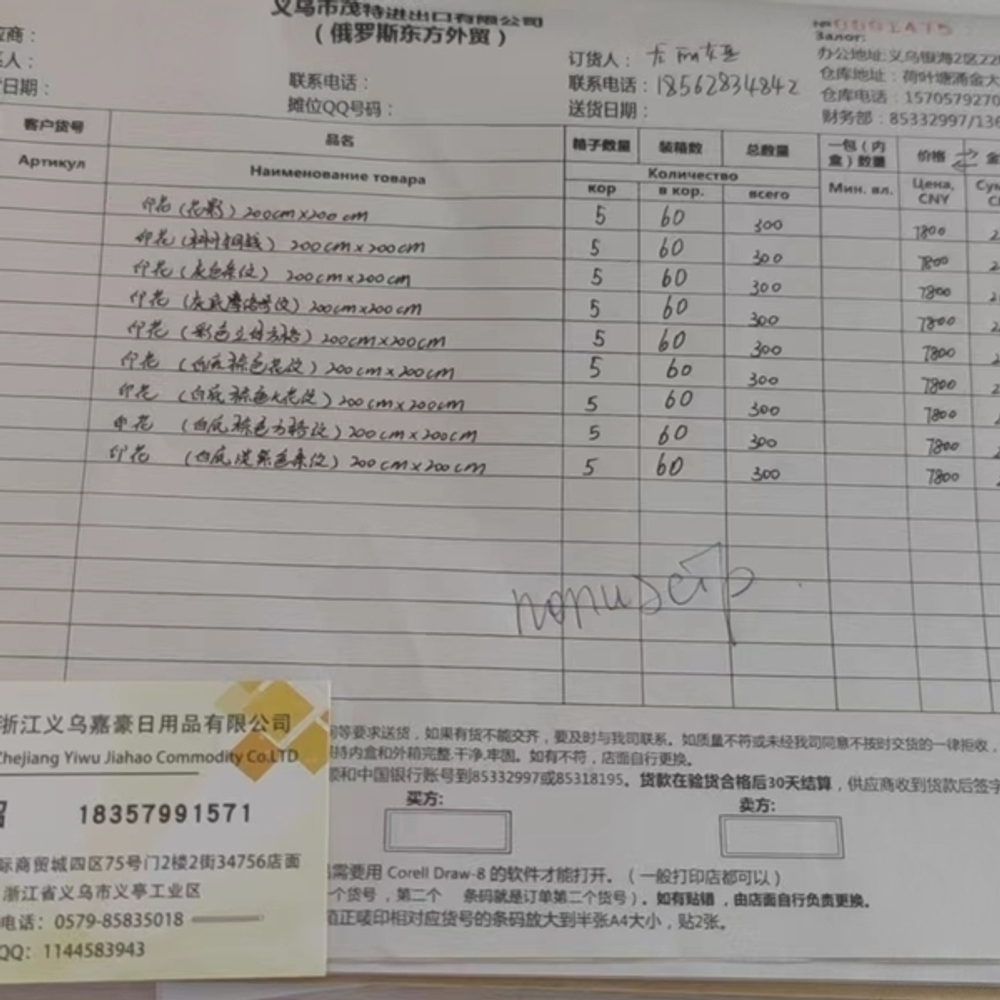 义乌市茂特进出口有限公司
（俄罗斯东方外贸）
应商：
人：
日期：
联系电话：
摊位QQ号码：
订货人：
联系电话：18562834842
送货日期：
Залог:
办公地址：义乌银海2区22
仓库地址：荷叶塘涌金大
仓库电话：157057920
财务部：85332997/136
客户货号 品名 箱子数量 装箱数 总数量 一包（内盒）数量 价格 金
Артикул Наименование товара Количество Мин. вл. Цена, CNY Сум
кор в кор. всего
印花（花影）200cm×200cm 5 60 300 7800
印花 200cm×200cm 5 60 300 7800
印花（灰色条纹）200cm×200cm 5 60 300 7800
印花（灰底摩洛哥纹）200cm×200cm 5 60 300 7800
印花（彩色立体方格）200cm×200cm 5 60 300 7800
印花（白底棕色花纹）200cm×200cm 5 60 300 7800
印花（白底棕色大花纹）200cm×200cm 5 60 300 7800
印花（白底棕色方格纹）200cm×200cm 5 60 300 7800
印花（白底淡紫色条纹）200cm×200cm 5 60 300 7800
полиэстр
等要求送货，如果有货不能交齐，要及时与我司联系。如质量不符或未经我司同意不按时交货的一律拒收，
持内盒和外箱完整.干净.牢固。如有不符，店面自行更换。
和中国银行账号到85332997或85318195。货款在验货合格后30天结算，供应商收到货款后签字
买方： 卖方：
需要用 Corell Draw-8 的软件才能打开。（一般打印店都可以）
个货号，第二个 条码就是订单第二个货号）。如有贴错，由店面自行负责更换。
正唛印相对应货号的条码放大到半张A4大小，贴2张。
浙江义乌嘉豪日用品有限公司
Zhejiang Yiwu Jiahao Commodity Co.LTD
18357991571
际商贸城四区75号门2楼2街34756店面
浙江省义乌市义亭工业区
电话：0579-85835018
QQ：1144583943